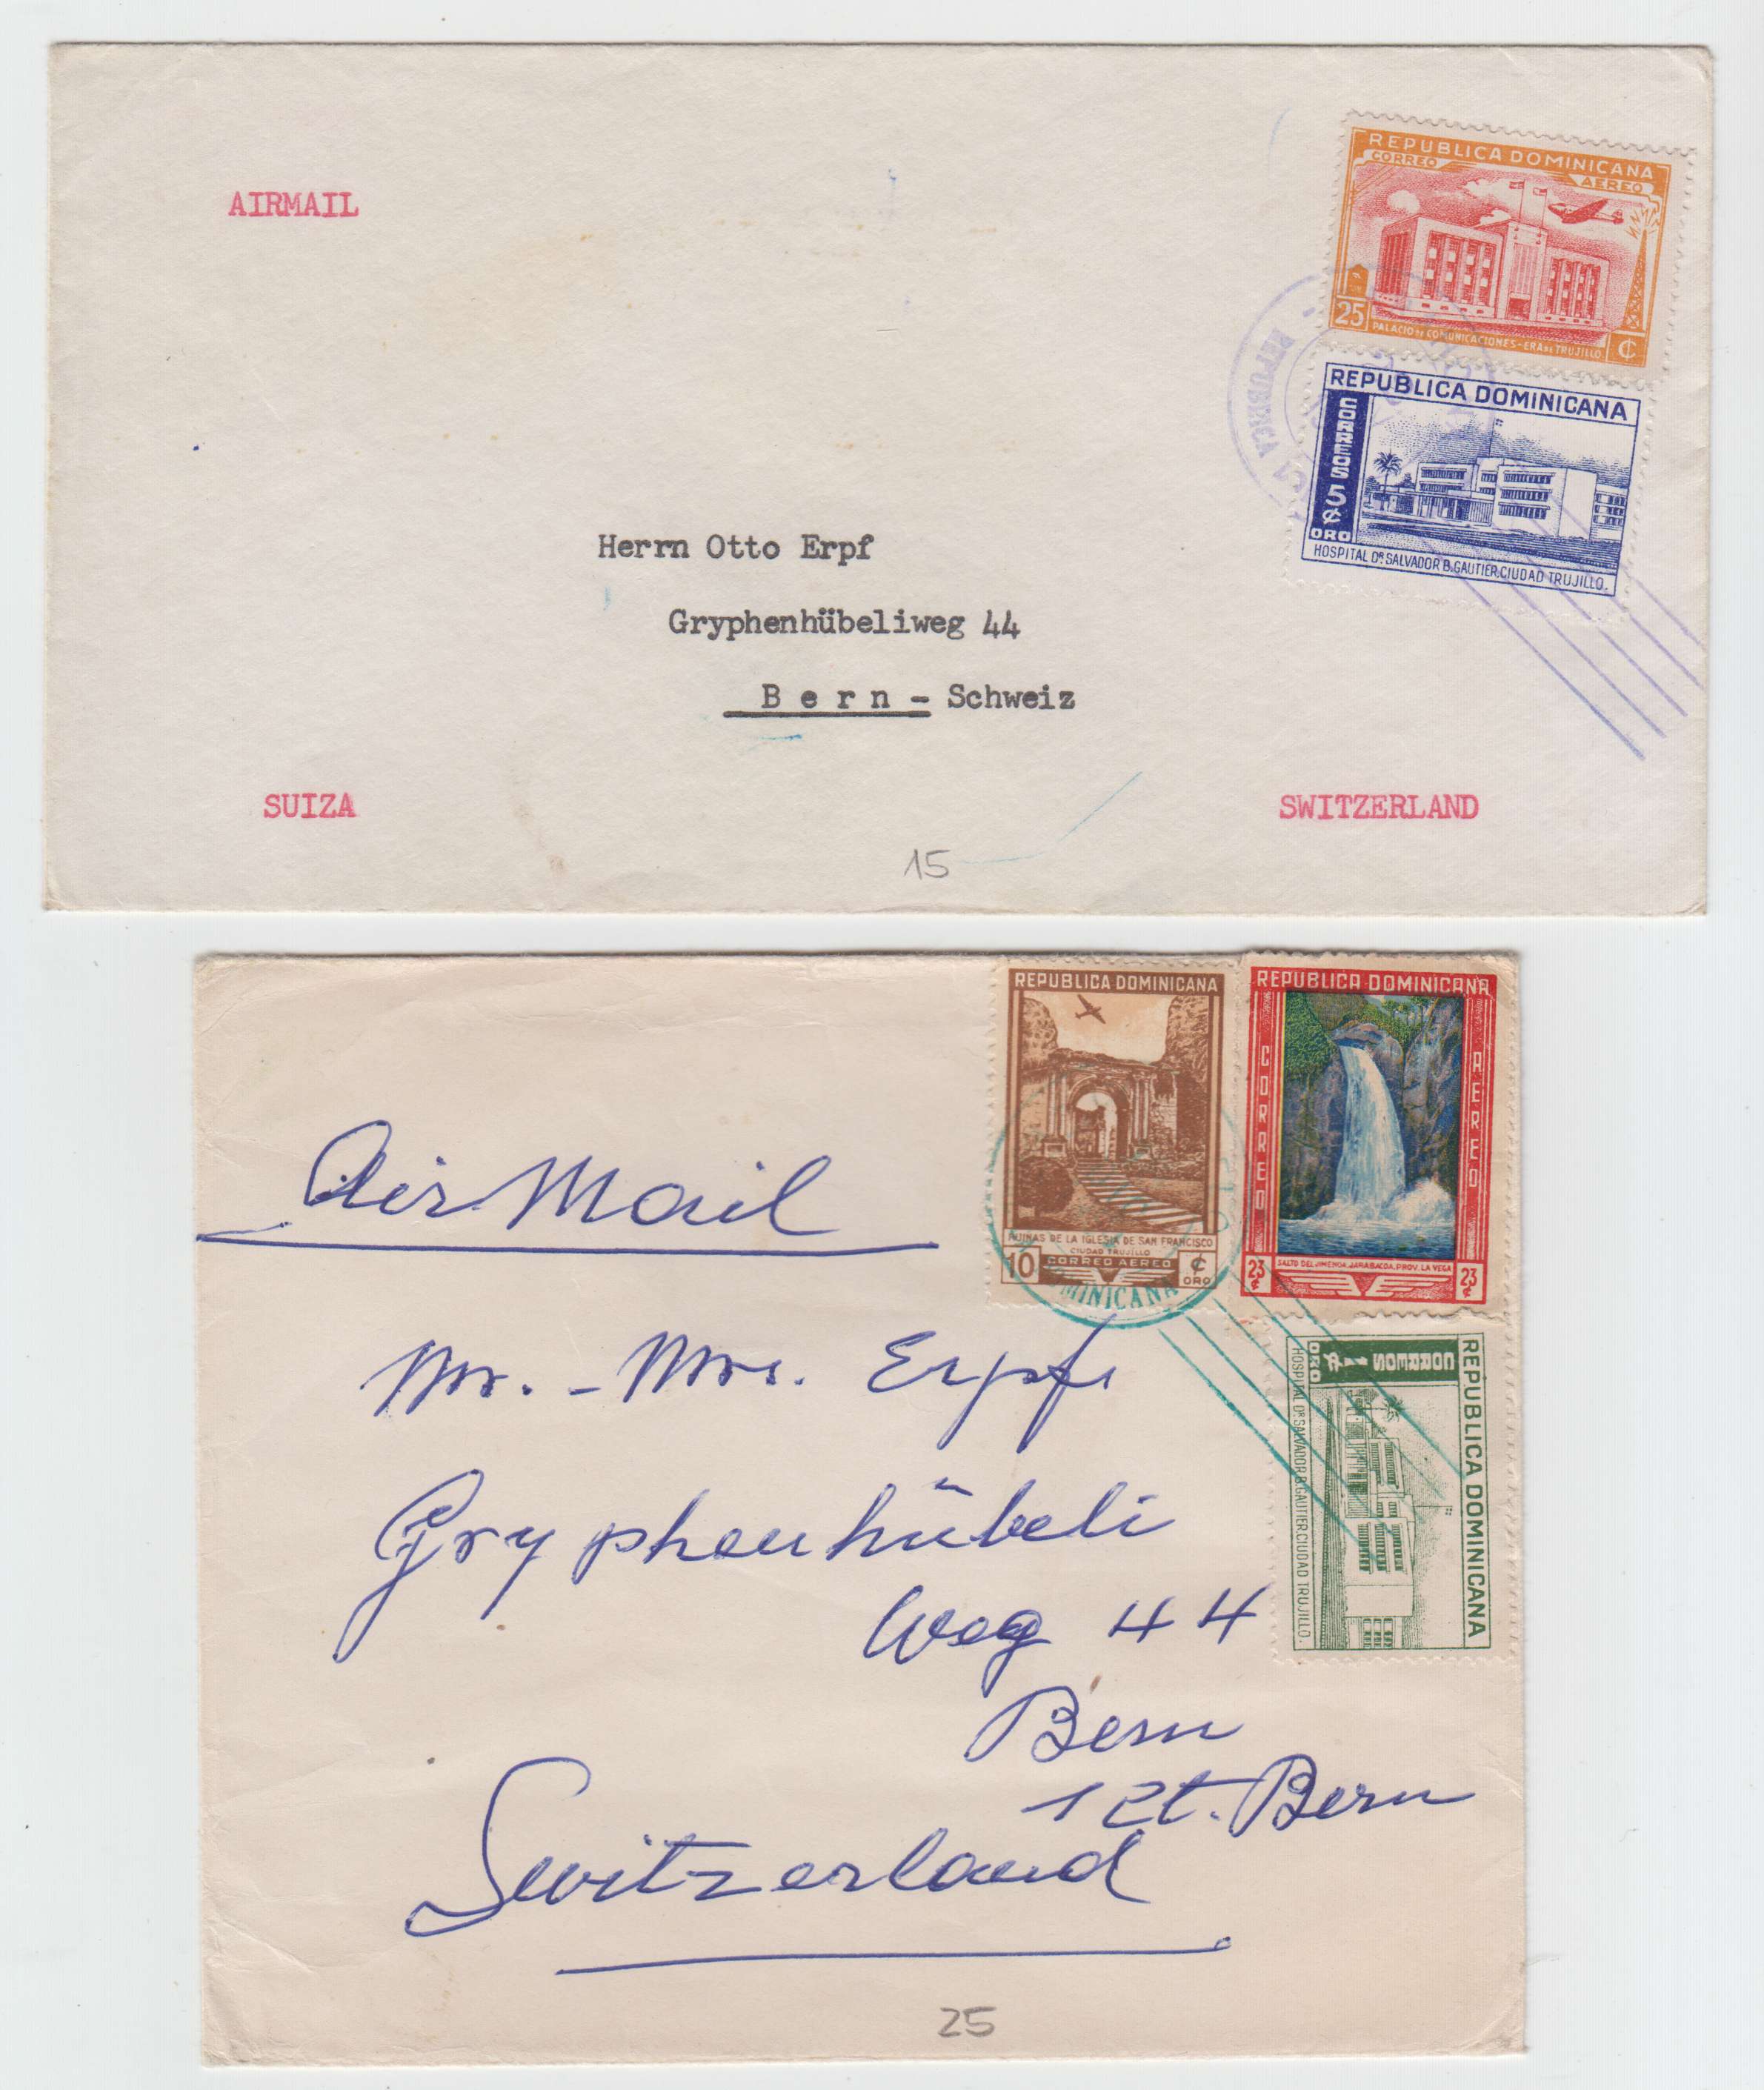 AIRMAIL
REPUBLICA DOMINICANA
CORREO
AEREO
25
PALACIO DE COMUNICACIONES-ERA DE TRUJILLO
¢
REPUBLICA DOMINICANA
CORREOS 5¢
ORO
HOSPITAL DR. SALVADOR B. GAUTIER, CIUDAD TRUJILLO.
Herrn Otto Erpf
Gryphenhübeliweg 44
Bern - Schweiz
SUIZA
SWITZERLAND
15
REPUBLICA DOMINICANA
RUINAS DE LA IGLESIA DE SAN FRANCISCO
CIUDAD TRUJILLO
10 CORREO AEREO ¢
ORO
MINICANA
REPUBLICA DOMINICANA
CORREO
AEREO
23¢ SALTO DEL JIMENOA, JARABACOA, PROV. LA VEGA 23¢
REPUBLICA DOMINICANA
CORREOS 1¢
ORO
HOSPITAL DR. SALVADOR B. GAUTIER, CIUDAD TRUJILLO.
Air Mail
Mr. - Mrs. Erpf
Gryphenhübeli
Weg 44
Bern
Kt. Bern
Switzerland
25